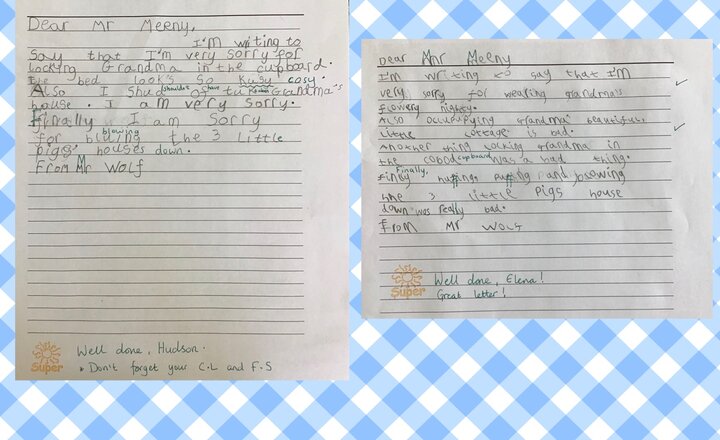 Dear Mr Meeny,
I'm writing to
say that I'm very sorry for
locking Grandma in the cupboard.
bed looks so cosy.
Also I shud shouldn't of have Grandma's
house. I am very sorry.
Finally I am sorry
for bluing blowing the 3 little
pigs' houses down.
From Mr Wolf
Super
Well done, Hudson.
* Don't forget your C.L and F.S
Dear Mr Meeny
I'm writing to say that I'm
very sorry for wearing grandma's
flowery nighty.
Also occupying grandma' beautiful
little cottage is bad.
Another thing locking grandma in
the cupboard was a bad thing.
Finally, puffing and blowing
the 3 little pigs house
down was really bad.
From Mr Wolf
Super
Well done, Elena!
Great letter!